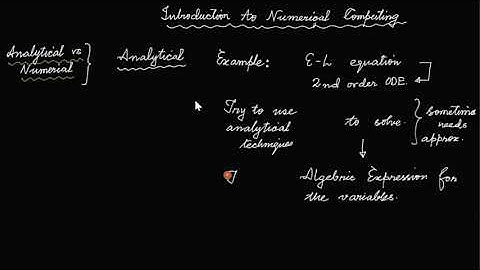 Introduction to Numerical Computing
Analytical vs
Numerial
Analytical
Example: E-L equation
2nd order ODE.
Try to use
analytical
techniques
to solve.
sometimes
needs
approx.
Algebric Expression for
the variables.